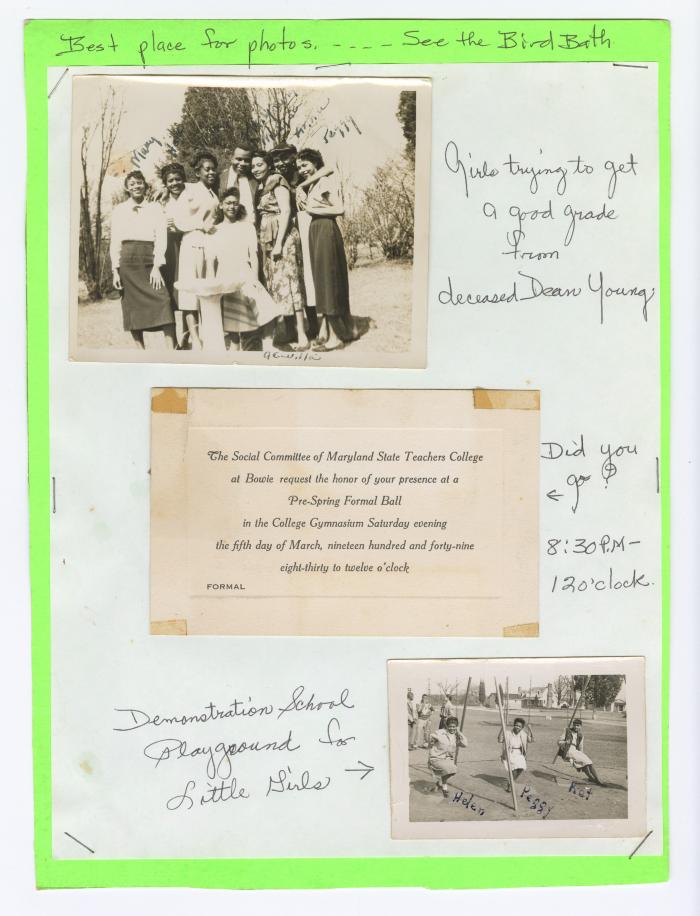 Best place for photos. - - - - See the Bird Bath
Mary
Peggy
Girls trying to get
a good grade
from
deceased Dean Young.
The Social Committee of Maryland State Teachers College
at Bowie request the honor of your presence at a
Pre-Spring Formal Ball
in the College Gymnasium Saturday evening
the fifth day of March, nineteen hundred and forty-nine
eight-thirty to twelve o'clock
FORMAL
Did you
go?
←
8:30 P.M-
12 o'clock.
Demonstration School
Playground for
Little Girls →
Helen Peggy Kat